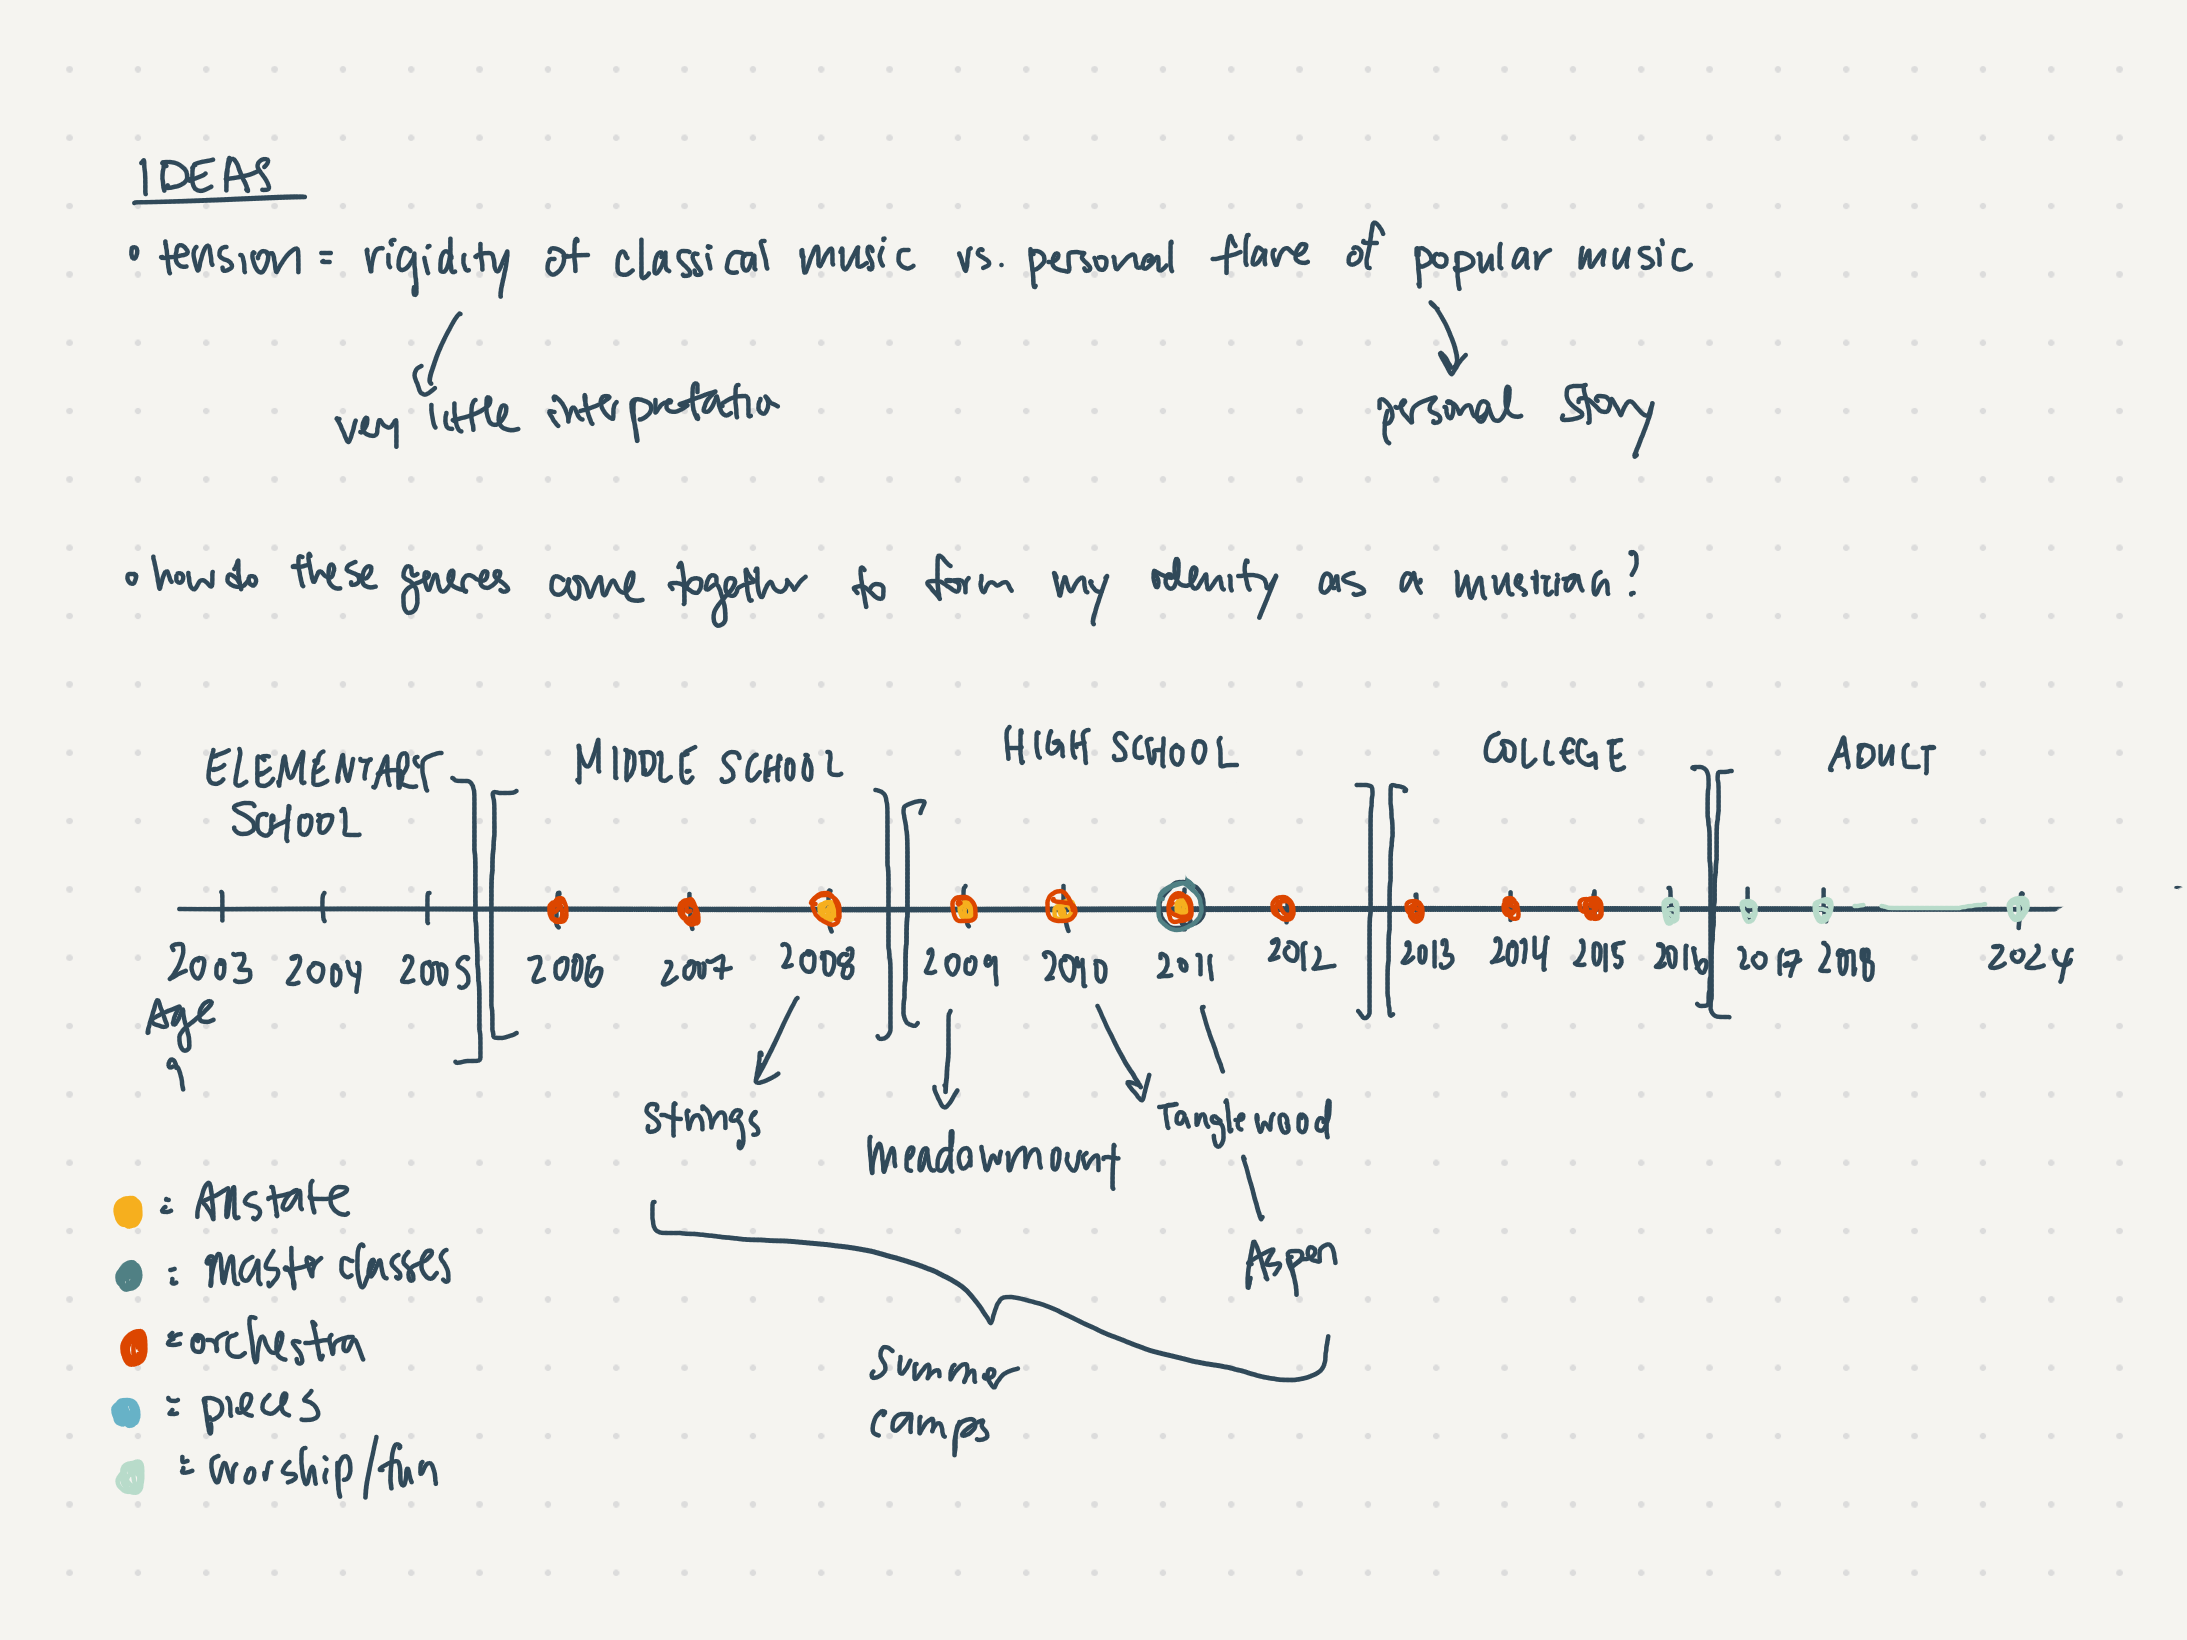 IDEAS
• tension = rigidity of classical music vs. personal flare of popular music
very little interpretatio
personal story
• how do these genres come together to form my idenity as a musician?
ELEMENTARY SCHOOL
MIDDLE SCHOOL
HIGH SCHOOL
COLLEGE
ADULT
2003 2004 2005 2006 2007 2008 2009 2010 2011 2012 2013 2014 2015 2016 2017 2018 2024
Age
9
Strings
Meadowmount
Tanglewood
Aspen
summer
camps
: Allstate
: Master classes
= orchestra
= pieces
= worship/fun